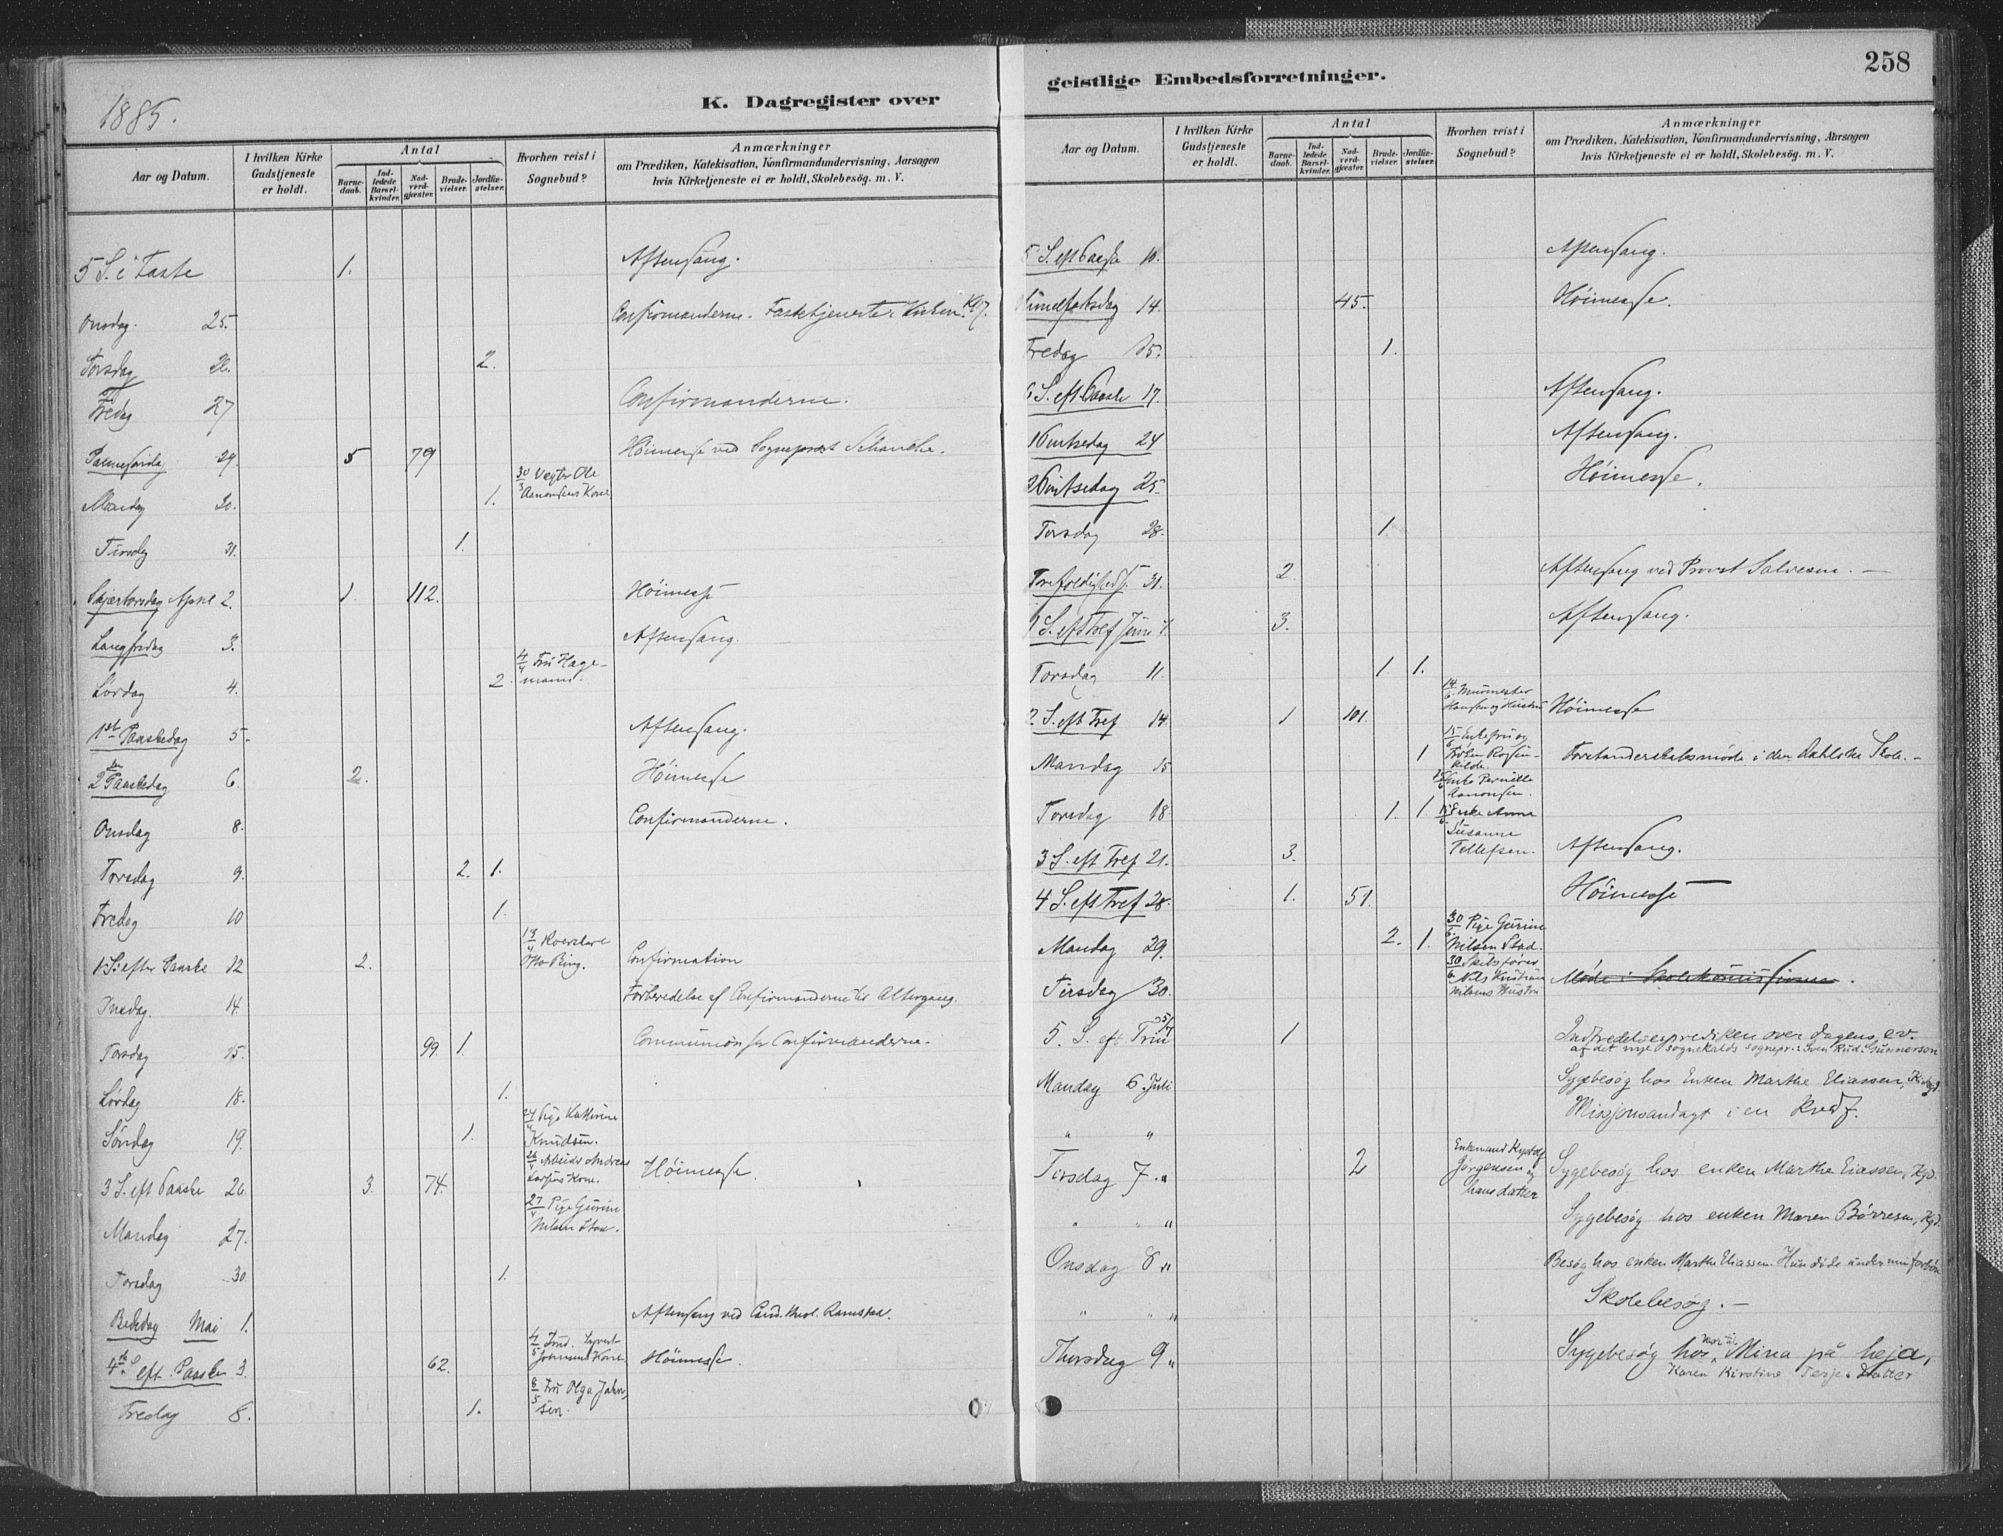 1885.
K. Dagregister over
Aar og Datum.
I hvilken Kirke Gudstjeneste er holdt.
Antal
Barnedaab.
Indledede Barselkvinder.
Nadverdgjæster.
Brudevielser.
Jordfæstelser.
Hvorhen reist i Sognebud?
Anmærkninger
om Prædiken, Katekisation, Konfirmandundervisning, Aarsagen
hvis Kirketjeneste ei er holdt, Skolebesøg. m. V.
5 S. i Faste 1. Aftensang.
Onsdag. 25. Confirmanderne. Fastetjeneste i Kirken Kl 7.
Torsdag 26. 2.
Fredag 27 Confirmanderne.
Palmesøndag 29. 5 79 Høimesse ved Sogneprest Schanche.
Mandag 30. 1. 30/3 Vegter Ole Aanonsens Kone
Tirsdag 31. 1.
Skjærtorsdag April 2. 1. 112. Høimesse
Langfredag 3. Aftensang.
Lørdag 4. 2. 4/4 Fru Hagemann.
1ste Paaskedag 5. Aftensang.
2den Paaskedag 6. 2. Høimesse
Onsdag 8. Confirmanderne.
Torsdag 9. 2. 1.
Fredag 10 1.
1 S. efter Paaske 12 2. Otto Ring. Confirmation
14. Forberedelse af Confirmanderne til Altergang.
Torsdag 15. 99 1. Communion for Confirmanderne.
Lørdag 18. 1.
Søndag 19. 1. Pige Kathrine Knudsen.
3 S. eft Paaske 26. 3. 74. Arbeider Andreas Kone. Høimesse.
Mandag 27. 27/4 Pige Gurine Nilsen Stoa.
Torsdag 30. 1.
Bededag Mai 1. Aftensang ved Cand. theol. Ramstad.
4de S. eft. Paaske 3. 62. Høimesse.
Fredag 8. 1. 8/5 Fru Olga Jahnsen.
geistlige Embedsforretninger.
258
Aar og Datum.
I hvilken Kirke Gudstjeneste er holdt.
Antal
Barnedaab.
Indledede Barselkvinder.
Nadverdgjæster.
Brudevielser.
Jordfæstelser.
Hvorhen reist i Sognebud?
Anmærkninger
om Prædiken, Katekisation, Konfirmandundervisning, Aarsagen
hvis Kirketjeneste ei er holdt, Skolebesøg. m. V.
5 S. eft Paaske 10. Aftensang.
Himmelfartsdag 14. 45. Høimesse.
Fredag 15. 1.
6 S. eft Paaske 17. Aftensang.
1 Pintsedag 24 Aftensang.
2 Pintsedag 25. Høimesse.
Torsdag 28. 1.
Trefoldigheds. 31. 2 Aftensang ved Provst Salvesen.
1 S. eft Tref Juni 7. 3. Aftensang.
Torsdag 11. 1 1.
2. S. eft Tref 14. 1 101. 14/6 Murmester Hansen og Hustru Høimesse
Mandag 15 1 15/6 Enkefru og Frøken Rosenkilde. Forstanderskabsmøde i den Dahlske Skole.
Enke Pernille Aanonsen.
Torsdag 18 1. 1 Enke Anna Susanne Tellefsen.
3 S. eft Tref 21. 3. Aftensang.
4 S. eft Tref 28. 1. 51. Høimesse
Mandag 29. 2. 1. 30/6 Pige Gurine Nilsen Stoa.
Tirsdag 30. 30/6 Skibsfører Nils Kristian Nilsens Hustru Møde i Skolekommissionen.
5. S. eft Trin 5/7 1 Indtrædelsesprediken over dagens ev.
af det nye sognekalds sognepr: Sven Rud. Gunnerson
Mandag 6. Juli Sygebesøg hos Enken Marthe Eliassen, Kirkegd.
" " Missjonsandagt i en Kredz.
Tirsdag 7. " 2 Enkemand Jørgensen og hans datter Sygebesøg hos enken Marthe Eiassen, Kgd.
" " " Sygebesøg hos enken Maren Børresen, Kgd.
Onsdag 8 " Besøg hos enken Marthe Eliassen. Hun døde under min forbøn
" " Skolebesøg.
Thorsdag 9 " Sygebesøg hos Mina på heja,
Karen Kirstine Terjes Datter